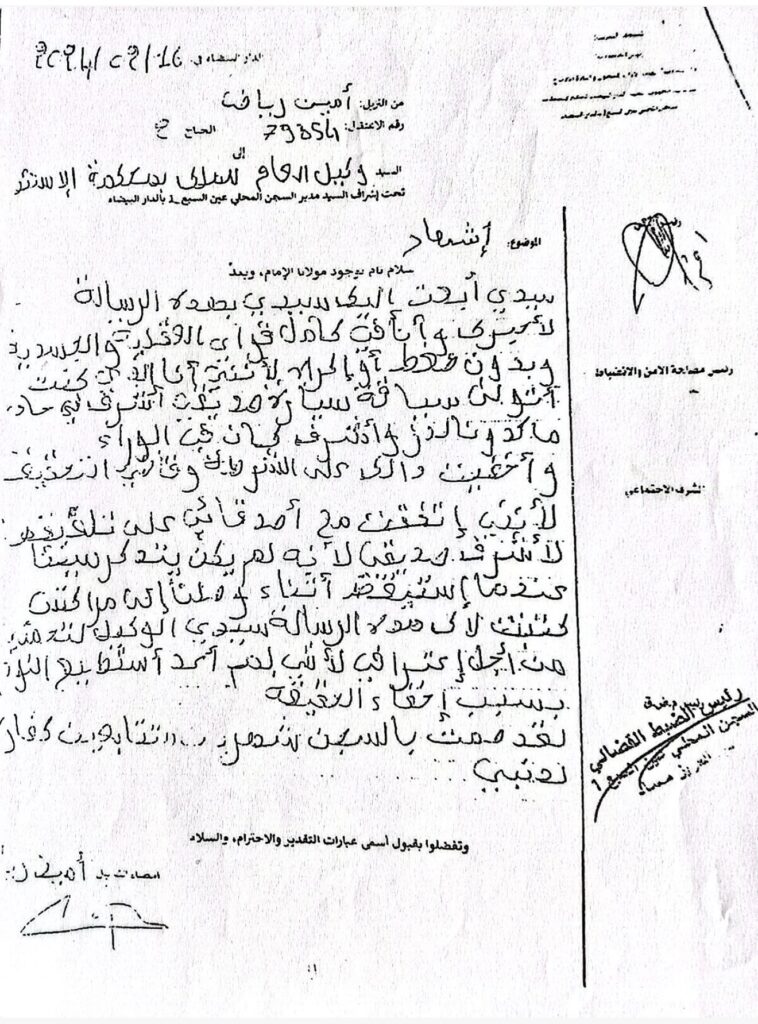 الدار البيضاء في 2024/09/16
من النزيل: أمين رياض
رقم الاعتقال: 79354 الجناح
إلى
السيد وكيل العام للملك بمحكمة الإستئ
تحت إشراف السيد مدير السجن المحلي عين السبع 1 بالدار البيضاء
الموضوع: إشهاد
سلام تام بوجود مولانا الإمام، وبعد
سيدي أبعث إليك سيدي بهذه الرسالة
لأعترف وأنا في كامل قواي العقلية والجسدية
وبدون ضغط أو إكراه لأنني أنا الذي كنت
أتولى سياقة سيارة صديقي أشرف في حاد
ماكدونالدز وأشرف كان في الوراء
وأخفيت ذالك على الشرطة وقاضي التحقيق
لأنني إتفقت مع أصدقائي على
لأشرف صديقي لأنه لم يكن يتذكر شيئا
عندما إستيقظ أثناء وصلنا إلى مراكش
كتبت لك هذه الرسالة سيدي الوكيل
من أجل إعترافي لأنني لم أعد أستطيع النوم
بسبب إخفاء الحقيقة
لقد صمت بالسجن شهرين متتابعين كفار
لذنبي
وتفضلوا بقبول أسمى عبارات التقدير والاحترام، والسلام
أمين
رئيس مصلحة الأمن والانضباط
المشرف الاجتماعي
رئيس الضبط القضائي
السجن المحلي عين السبع 1